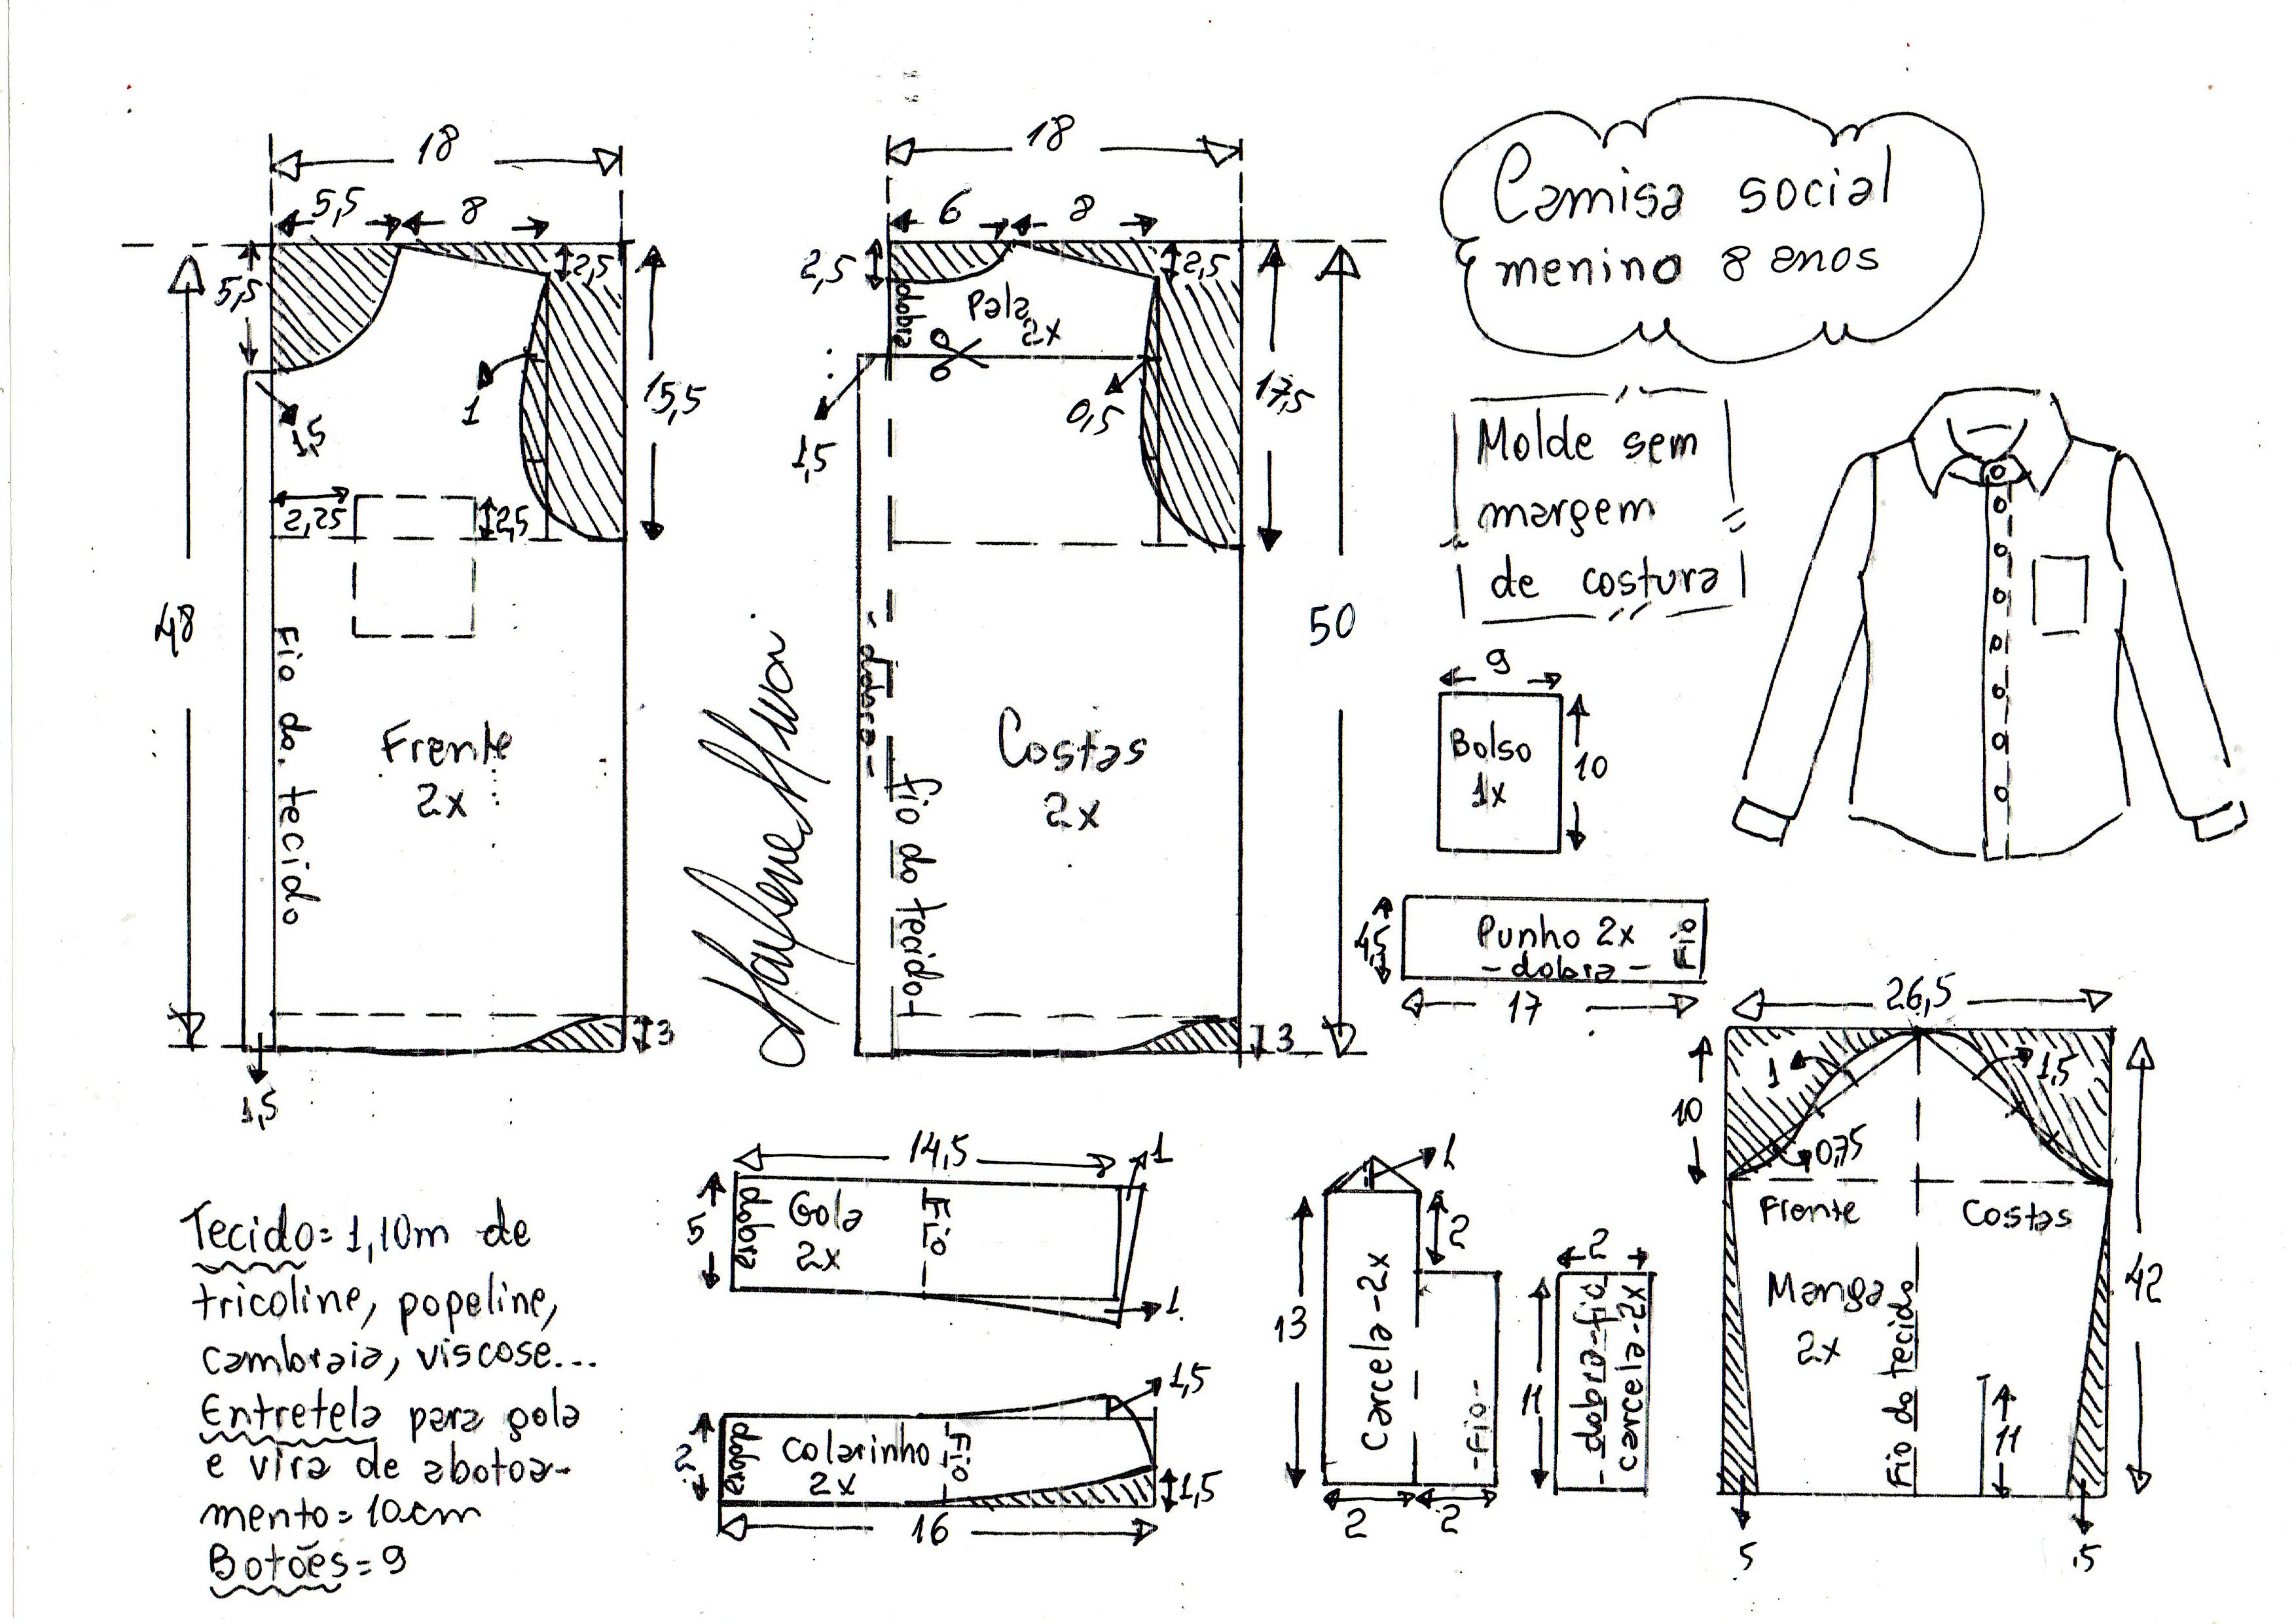 18
5,5
8
5,5
2,5
15,5
1
1,5
2,25
2,5
48
Fio do tecido
Frente
2x
3
1,5
18
6
8
2,5
2,5
dobra
Pala
2x
17,5
0,5
1,5
50
- dobra -
fio do tecido
Costas
2x
3
Camisa social
menino 8 anos
Molde sem
margem
de costura
9
Bolso
1x
10
4,5
Punho 2x
- dobra -
Fio
17
26,5
10
1
1,5
0,75
Frente
Costas
Manga
2x
Fio do tecido
11
42
5
5
Tecido = 1,10m de
tricoline, popeline,
cambraia, viscose...
Entretela para gola
e vira de abotoa-
mento = 10cm
Botões = 9
14,5
1
5
dobra
Gola
2x
Fio
1
1,5
2
dobra
Colarinho
2x
Fio
1,5
16
1
2
13
Carcela - 2x
- Fio -
2
2
2
11
- dobra - fio
carcela - 2x